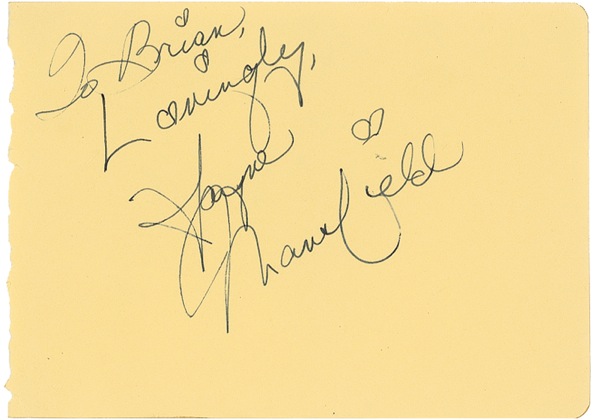 To Brian,
Lovingly,
Jayne
Mansfield